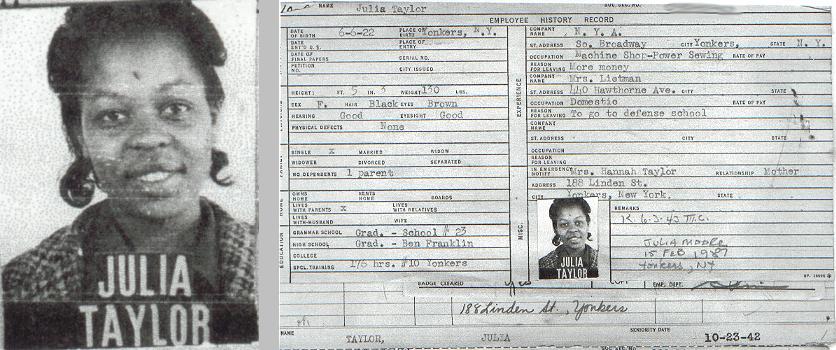 JULIA
TAYLOR
NAME Julia Taylor
EMPLOYEE HISTORY RECORD
DATE OF BIRTH 6-6-22 PLACE OF BIRTH Yonkers, N.Y.
DATE
PLACE OF ENTRY
DATE OF FINAL PAPERS SERIAL NO.
PETITION NO. CITY ISSUED
HEIGHT: FT. 5 IN. 3 WEIGHT 130 LBS.
SEX F. HAIR Black EYES Brown
HEARING Good EYESIGHT Good
PHYSICAL DEFECTS None
SINGLE X MARRIED WIDOW
WIDOWER DIVORCED SEPARATED
NO. DEPENDENTS 1 parent
OWNS HOME RENTS HOME BOARDS
LIVES WITH PARENTS X LIVES WITH RELATIVES
LIVES WITH-HUSBAND WIFE
EDUCATION
GRAMMAR SCHOOL Grad. - School # 23
HIGH SCHOOL Grad. - Ben Franklin
COLLEGE
SPCL. TRAINING 176 hrs. #10 Yonkers
EXPERIENCE
COMPANY NAME N. Y. A.
ST. ADDRESS So. Broadway CITY Yonkers, STATE N. Y.
OCCUPATION Machine Shop-Power Sewing RATE OF PAY
REASON FOR LEAVING More money
COMPANY NAME Mrs. Lietman
ST. ADDRESS 440 Hawthorne Ave. CITY STATE
OCCUPATION Domestic RATE OF PAY
REASON FOR LEAVING To go to defense school
COMPANY NAME
ST. ADDRESS CITY STATE
OCCUPATION
REASON FOR LEAVING
MISC.
IN EMERGENCY NOTIFY Mrs. Hannah Taylor RELATIONSHIP Mother
ADDRESS 188 Linden St.
CITY Yonkers, New York. STATE
JULIA
TAYLOR
REMARKS
R. 6-3-43 M.C.
JULIA MOORE
15 FEB 1987
Yonkers, NY
BADGE CLEARED yes COPY EMPL. DEPT.
188 Linden St., Yonkers
NAME TAYLOR, JULIA SENIORITY DATE 10-23-42